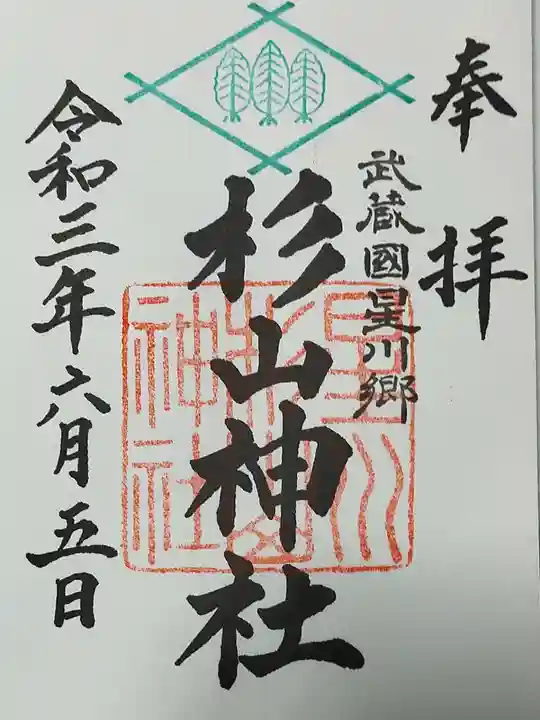 奉拝
武蔵國星川郷
杉山神社
星川
杉山
神社
令和三年六月五日